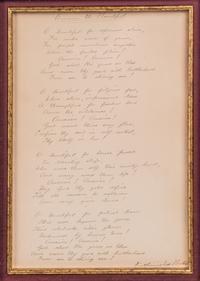 America the Beautiful
O beautiful for spacious skies,
For amber waves of grain,
For purple mountain majesties
Above the fruited plain!
America! America!
God shed His grace on thee
And crown thy good with brotherhood
From sea to shining sea!
O beautiful for pilgrim feet,
Whose stern, impassioned stress
A thoroughfare for freedom beat
Across the wilderness!
America! America!
God mend thine every flaw,
Confirm thy soul in self-control,
Thy liberty in law!
O beautiful for heroes proved
In liberating strife,
Who more than self their country loved,
And mercy more than life!
America! America!
May God thy gold refine
Till all success be nobleness
And every gain divine!
O beautiful for patriot dream
That sees beyond the years
Thine alabaster cities gleam
Undimmed by human tears!
America! America!
God shed His grace on thee
And crown thy good with brotherhood
From sea to shining sea!
Katharine Lee Bates